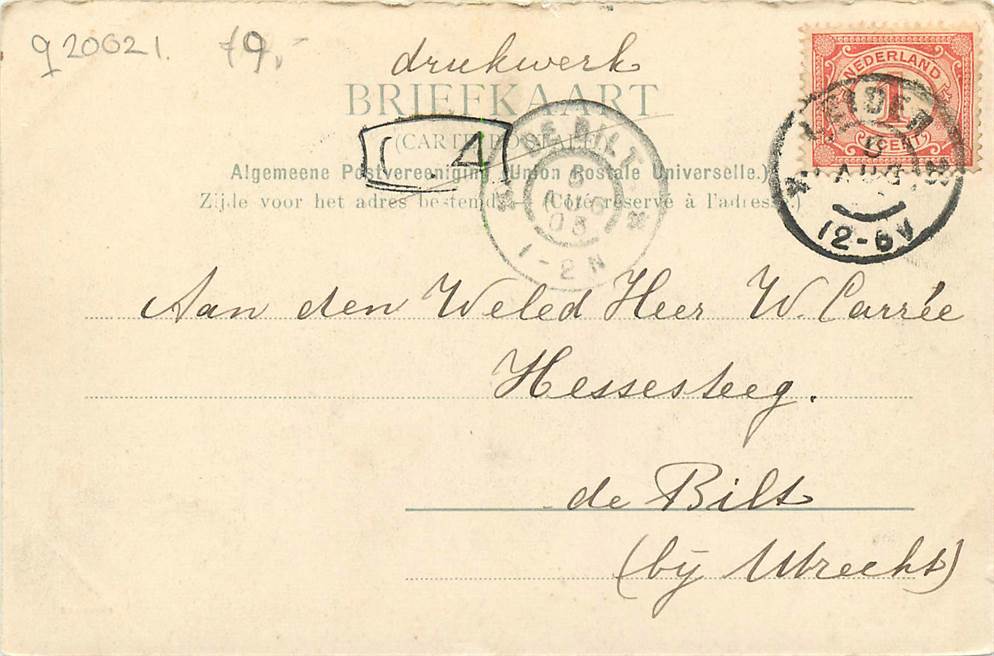 q20621. 19,-
drukwerk
NEDERLAND
1
CENT
BRIEFKAART
(CARTE POSTALE)
4
Algemeene Postvereeniging (Union Postale Universelle.)
Zijde voor het adres bestemd. — (Côté réservé à l'adresse.)
DE BILT
AUG
1-2N
12-6V
Aan den Weled Heer W. Carrée
Hessesteeg.
de Bilt
(bij Utrecht)